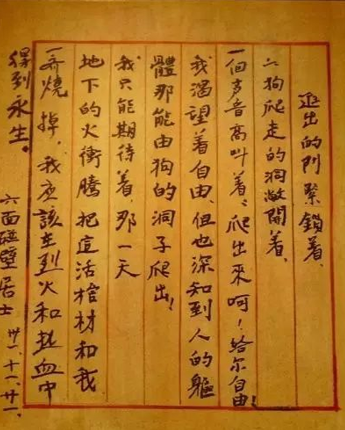 出的門緊鎖着、
狗爬走的洞敞開着、
一個声音高叫着：爬出來呵！給尔自由！
我渴望着自由、但也深知到人的軀
體那能由狗的洞子爬出！
我只能期待着，那一天
地下的火衝騰把這活棺材和我
一齊燒掉，我应該在烈火和热血中
得到永生。
六面碰壁居士 卅一、十一、廿一.